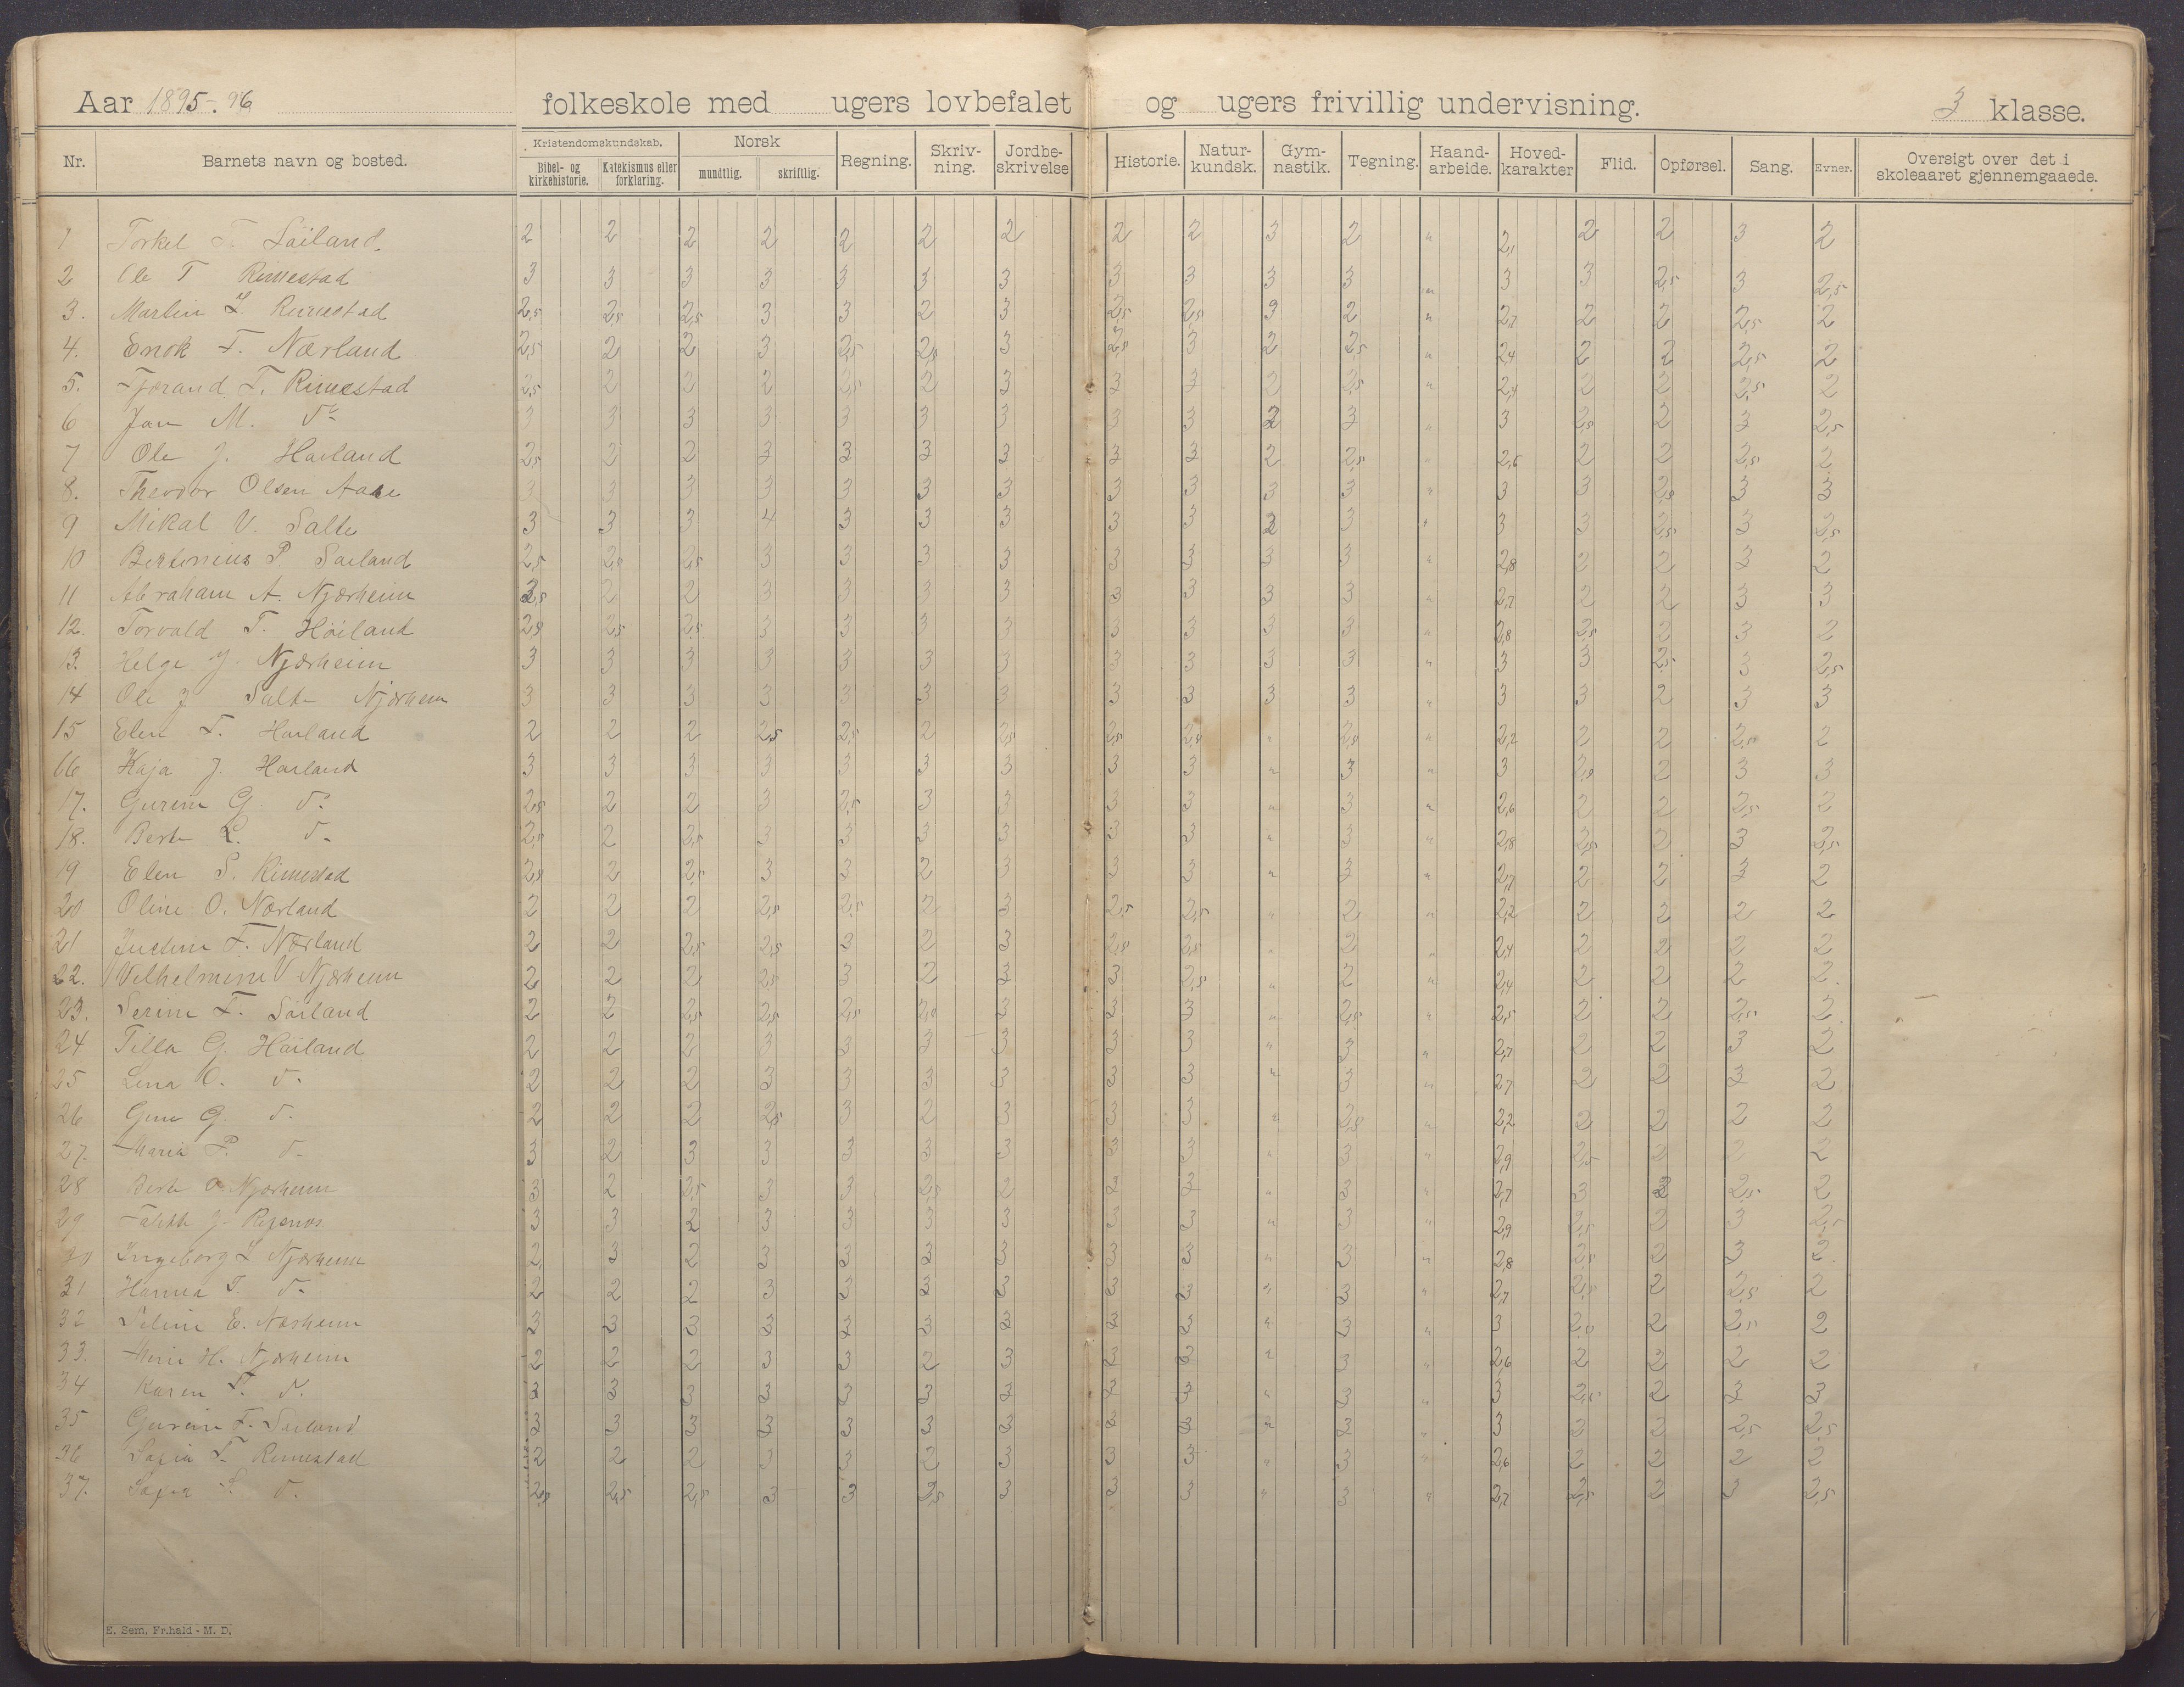 Aar 1895-96 folkeskole med ugers lovbefalet og ugers frivillig undervisning. 3 klasse.
Nr. Barnets navn og bosted. Kristendomskundskab. Bibel- og kirkehistorie. Katekismus eller forklaring. Norsk mundtlig. skriftlig. Regning. Skriv-ning. Jordbe-skrivelse Historie. Natur-kundsk. Gym-nastik. Tegning. Haand-arbeide. Hoved-karakter Flid. Opførsel. Sang. Evner. Oversigt over det i skoleaaret gjennemgaaede.
1 Torkel T. Söiland. 2 2 2 2 2 2 2 2 2 3 2 " 2,1 2 2 3 2
2 Ole T Rimestad 3 3 3 3 3 3 3 3 3 3 3 " 3 3 2,5 3 2,5
3. Martin L. Rimestad 2,5 2,5 2,5 3 3 2 3 2,5 2,5 3 2 " 2,7 2 2 2,5 2
4. Enok T. Nærland 2,5 2 2 3 2,5 2,5 3 2,5 3 2 2,5 " 2,4 2 2 2,5 2
5. Tjerand T. Rimestad 2,5 2 2 2 2,5 2 3 3 3 2 2,5 " 2,4 2 2 2,5 2
6 Jan M. do 3 3 3 3 3 3 3 3 3 2 3 " 3 2,5 2 3 2,5
7 Ole J. Høiland 2,5 2 2 3 3 3 3 3 3 2 2,5 " 2,6 2 2 2,5 2
8. Theodor Olsen 3 3 3 3 3 3 3 3 3 3 3 " 3 3 2,5 3 3
9 Mikal V. Salte 3 3 3 4 3 3 3 3 3 2 3 " 3 3 2,5 3 2,5
10 P. Söiland 2,5 2,5 2,5 3 3 3 3 3 3 3 3 " 2,8 2 2 3 2
11 Abraham A. Njærheim 2,5 2 2 3 3 3 3 3 3 3 3 " 2,7 2 2 3 3
12. Torvald T. Höiland 2,5 2,5 2,5 3 3 3 3 3 3 3 3 " 2,8 2,5 2 3 2
13. Helge J. Njærheim 3 3 3 3 3 3 3 3 3 3 3 " 3 3 2,5 3 2,5
14 Ole J Salte Njærheim 3 3 3 3 3 3 3 3 3 3 3 " 3 3 2 3 3
15 Elen T. Høiland 2 2 2 2,5 2,5 2 2,5 2,5 2,5 " 2,5 " 2,2 2 2 2,5 2
16 Kaja J. Høiland 3 3 3 3 3 3 3 3 3 " 3 " 3 2,5 2 3 3
17. Gurine G. do 2,5 2 2 3 2,5 3 3 3 3 " 3 " 2,6 2 2 2,5 2
18. Berte L. do 2,5 2 2,5 3 3 3 3 3 3 " 3 " 2,8 2,5 2 3 2,5
19 Elen S. Rimestad 2,5 2 2,5 3 3 2 3 3 3 " 3 " 2,7 2 2 3 2
20 Oline O. Nærland 2 2 2 2,5 2,5 2 3 2,5 2,5 " 2 " 2,2 2 2 2 2
21 T. Nærland 2 2 2,5 2,5 3 2 3 2,5 2,5 " 2 " 2,4 2 2 2 2
22. Vilhelmine V Njærheim 2 2 2 2,5 3 2 3 3 2,5 " 2 " 2,4 2 2 2 2
23. Serine T. Söiland 2 2 2,5 2,5 2,5 2,5 3 3 3 " 2,5 " 2,5 2 2 2,5 2
24 Tilla G. Höiland 2 2 2 3 3 3 3 3 3 " 3 " 2,7 2 2 3 2
25 Lina O. do 2 2 2 3 3 3 3 3 3 " 3 " 2,7 2 2 3 2
26 Gine G. do 2 2 2 2,5 3 2 3 3 3 " 2,5 " 2,2 2 2 2 2
27. Maria P. do 3 2 3 3 3 3 3 3 3 " 3 " 2,9 2,5 2 2 2
28 Berte O. Njærheim 3 2 2,5 3 3 2,5 2 3 3 " 3 " 2,7 3 2 2,5 2
29 J. 3 3 2 3 3 3 3 3 3 " 3 " 2,9 2,5 2 3 2,5
30 Ingeborg L Njærheim 2 3 2 3 3 3 3 3 3 " 3 " 2,8 2,5 2 3 2
31 Hanna T. do 2 2 2 3 3 3 3 3 3 " 3 " 2,7 2,5 2 2,5 2
32 E. Nærheim 3 3 3 3 3 3 3 3 3 " 3 " 3 2,5 2 2,5 2
33. H. Njærheim 2 2 2 3 3 2 3 3 3 " 3 " 2,6 2 2 2 2
34 Karen T. do 3 3 3 3 3 3 3 3 3 " 3 " 3 2,5 2 3 3
35 Gurine T. Söiland 3 3 3 3 3 3 3 3 3 " 3 " 3 3 2 2,5 2,5
36 Sofia T. Rimestad 2 2 2 3 3 2 3 3 3 " 3 " 2,6 2 2 2 2
37. Sofia S. do 2,5 2,5 2,5 3 3 2,5 3 3 3 " 3 " 2,7 2,5 2 3 2,5
E. Sem, Fr.hald - M. D.